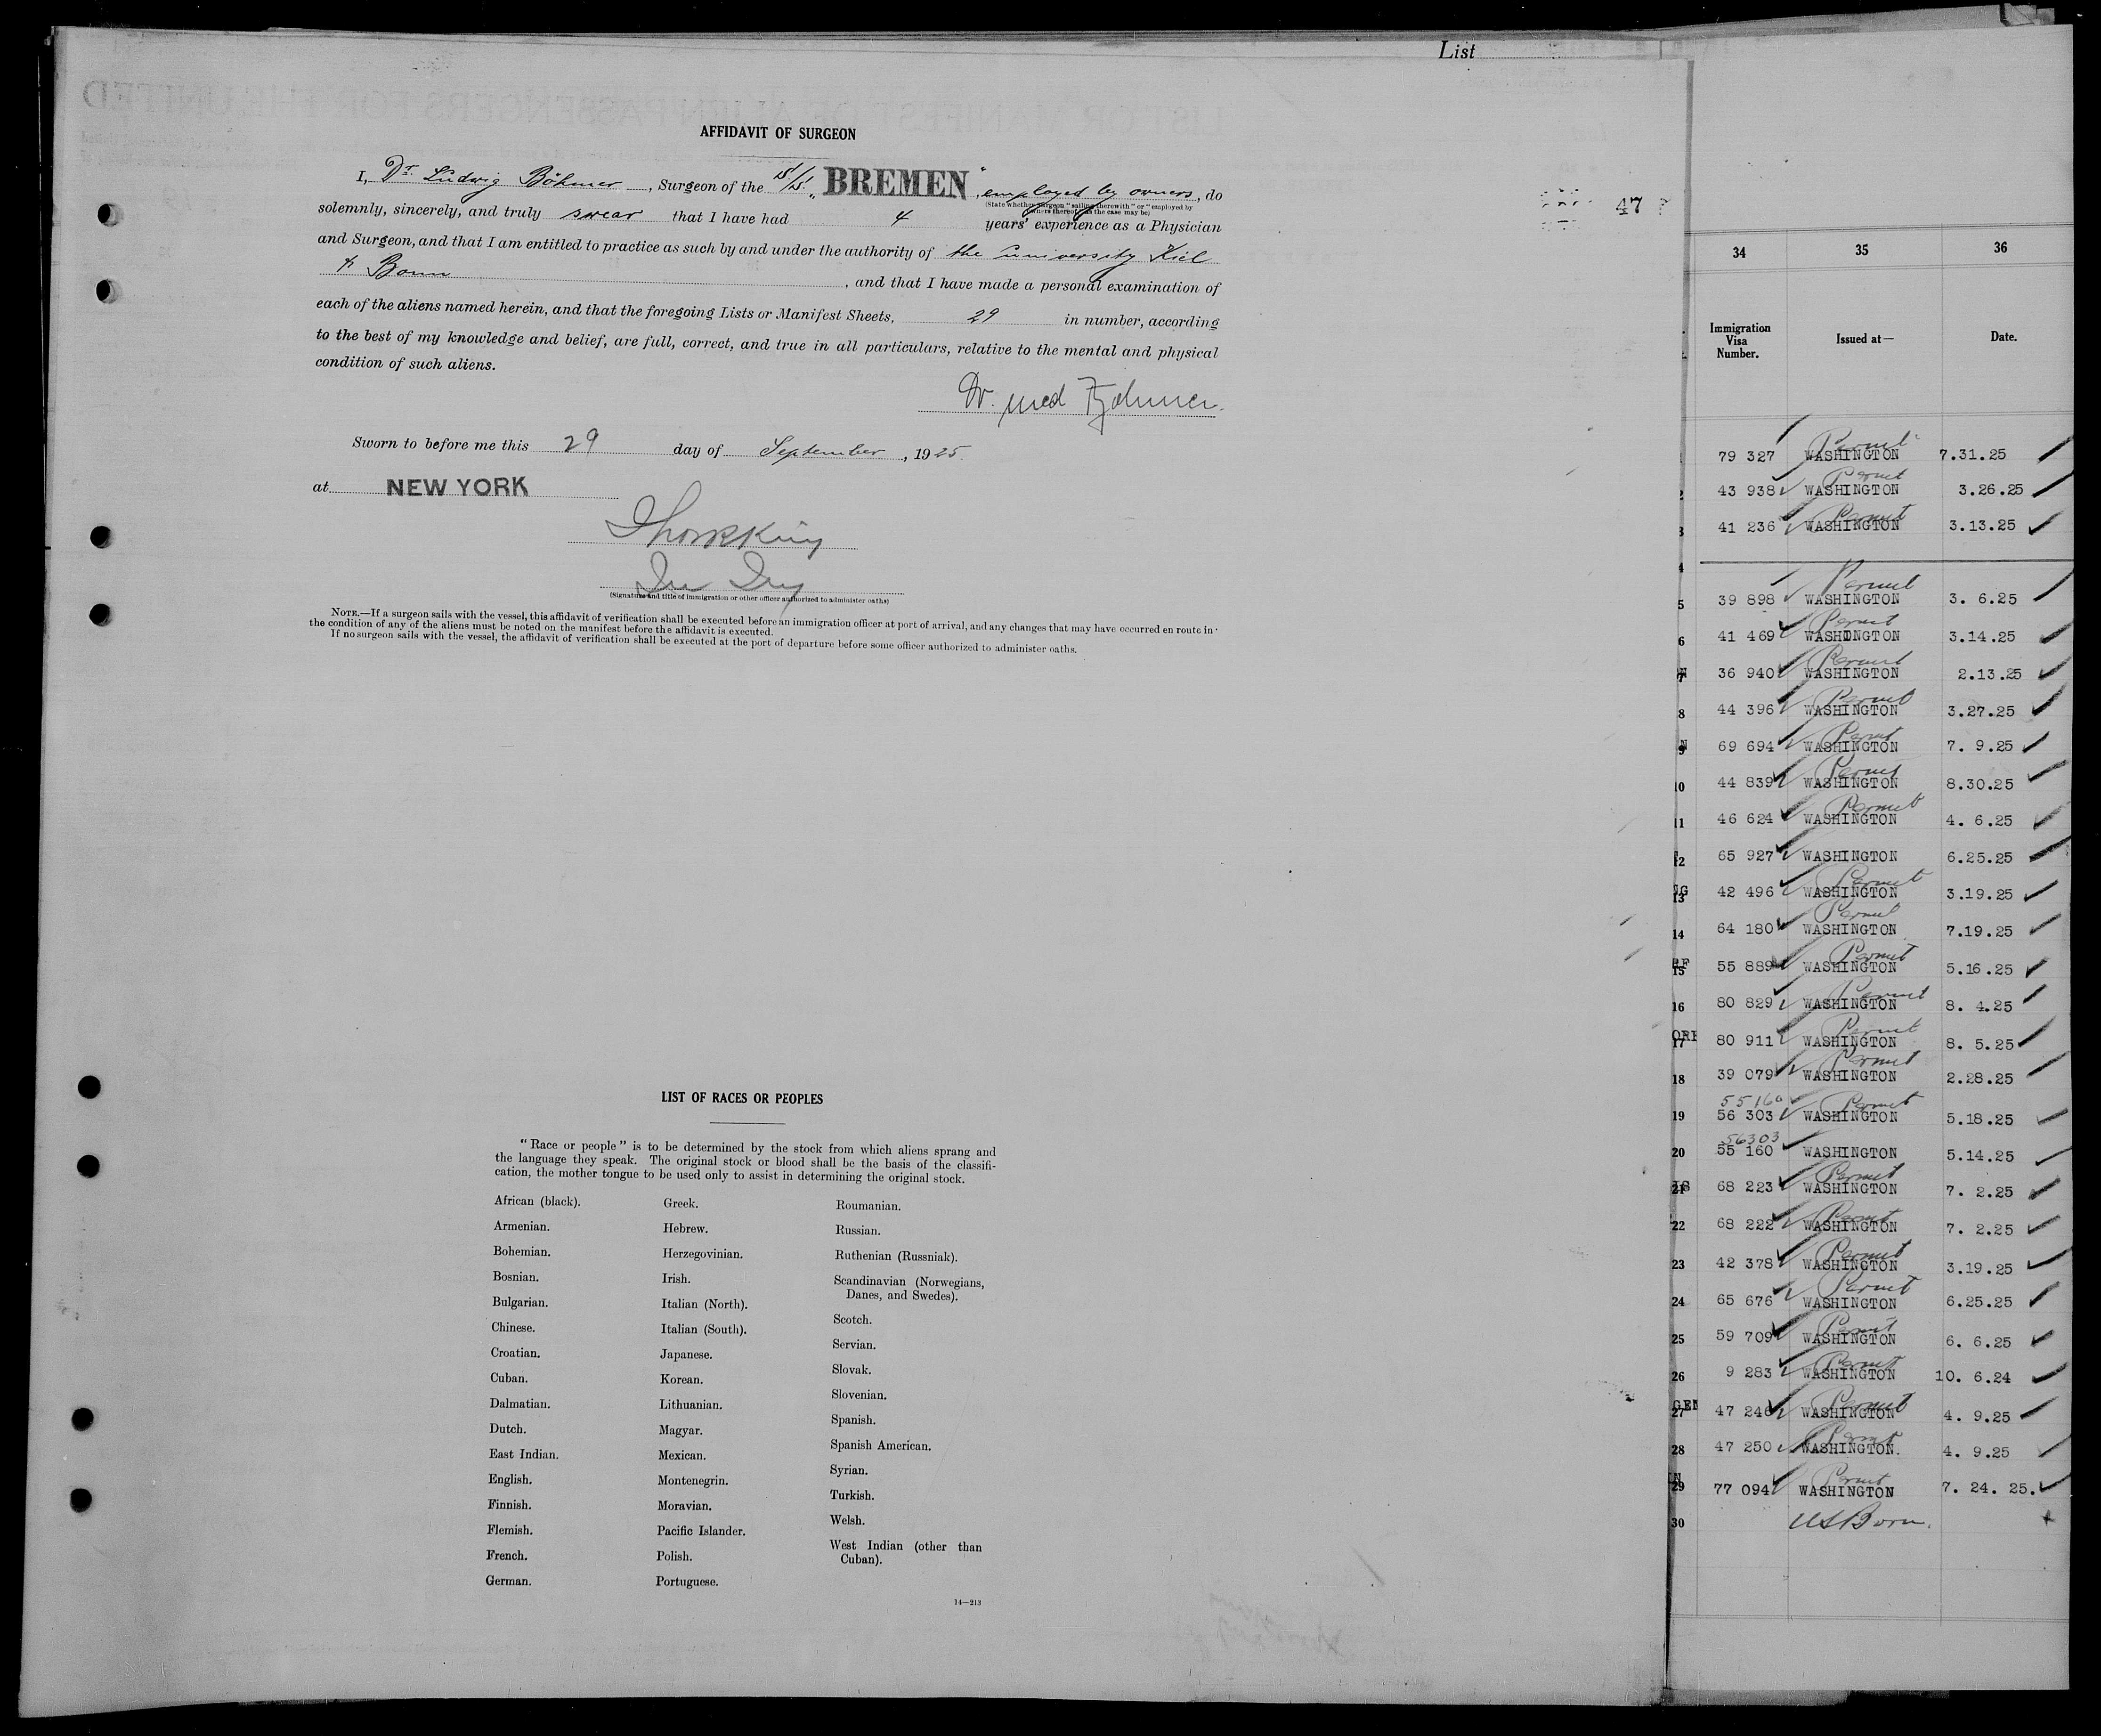 List
AFFIDAVIT OF SURGEON
I, Dr Ludwig Böhmer, Surgeon of the S/S. „BREMEN", employed by owners, do
(State whether surgeon "sailing therewith" or "employed by
owners thereof," as the case may be)
solemnly, sincerely, and truly swear that I have had 4 years' experience as a Physician
and Surgeon, and that I am entitled to practice as such by and under the authority of the University Kiel
& Bonn, and that I have made a personal examination of
each of the aliens named herein, and that the foregoing Lists or Manifest Sheets, 29 in number, according
to the best of my knowledge and belief, are full, correct, and true in all particulars, relative to the mental and physical
condition of such aliens.
Dr. med Böhmer.
Sworn to before me this 29 day of September, 1925.
at NEW YORK
(Signature and title of immigration or other officer authorized to administer oaths)
NOTE.—If a surgeon sails with the vessel, this affidavit of verification shall be executed before an immigration officer at port of arrival, and any changes that may have occurred en route in
the condition of any of the aliens must be noted on the manifest before the affidavit is executed.
If no surgeon sails with the vessel, the affidavit of verification shall be executed at the port of departure before some officer authorized to administer oaths.
LIST OF RACES OR PEOPLES
"Race or people" is to be determined by the stock from which aliens sprang and
the language they speak. The original stock or blood shall be the basis of the classifi-
cation, the mother tongue to be used only to assist in determining the original stock.
African (black).
Armenian.
Bohemian.
Bosnian.
Bulgarian.
Chinese.
Croatian.
Cuban.
Dalmatian.
Dutch.
East Indian.
English.
Finnish.
Flemish.
French.
German.
Greek.
Hebrew.
Herzegovinian.
Irish.
Italian (North).
Italian (South).
Japanese.
Korean.
Lithuanian.
Magyar.
Mexican.
Montenegrin.
Moravian.
Pacific Islander.
Polish.
Portuguese.
Roumanian.
Russian.
Ruthenian (Russniak).
Scandinavian (Norwegians,
Danes, and Swedes).
Scotch.
Servian.
Slovak.
Slovenian.
Spanish.
Spanish American.
Syrian.
Turkish.
Welsh.
West Indian (other than
Cuban).
14—213
47
34 35 36
Immigration Visa Number. Issued at— Date.
79 327 Permit WASHINGTON 7.31.25
43 938 Permit WASHINGTON 3.26.25
3 41 236 Permit WASHINGTON 3.13.25
4
5 39 898 Permit WASHINGTON 3. 6.25
6 41 469 Permit WASHINGTON 3.14.25
7 36 940 Permit WASHINGTON 2.13.25
8 44 396 Permit WASHINGTON 3.27.25
9 69 694 Permit WASHINGTON 7. 9.25
10 44 839 Permit WASHINGTON 8.30.25
11 46 624 Permit WASHINGTON 4. 6.25
12 65 927 WASHINGTON 6.25.25
13 42 496 Permit WASHINGTON 3.19.25
14 64 180 Permit WASHINGTON 7.19.25
15 55 889 Permit WASHINGTON 5.16.25
16 80 829 Permit WASHINGTON 8. 4.25
17 80 911 Permit WASHINGTON 8. 5.25
18 39 079 Permit WASHINGTON 2.28.25
55160
19 56 303 Permit WASHINGTON 5.18.25
56303
20 55 160 WASHINGTON 5.14.25
21 68 223 Permit WASHINGTON 7. 2.25
22 68 222 Permit WASHINGTON 7. 2.25
23 42 378 Permit WASHINGTON 3.19.25
24 65 676 Permit WASHINGTON 6.25.25
25 59 709 Permit WASHINGTON 6. 6.25
26 9 283 Permit WASHINGTON 10. 6.24
27 47 246 Permit WASHINGTON 4. 9.25
28 47 250 Permit WASHINGTON. 4. 9.25
29 77 094 Permit WASHINGTON 7. 24. 25.
30 US Born.